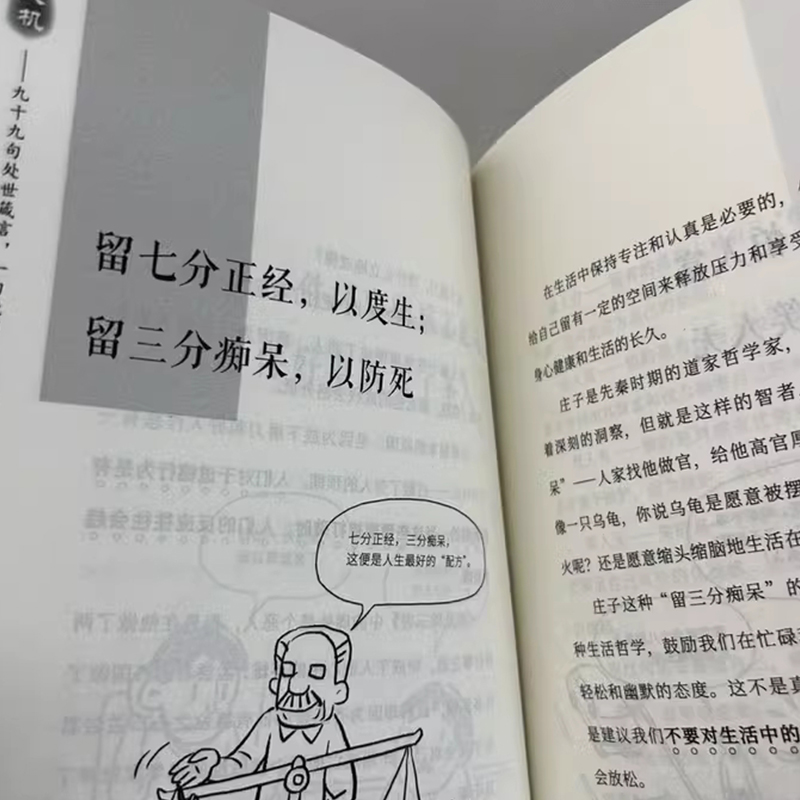 机
——九十九句处世箴言，一
留七分正经，以度生；
留三分痴呆，以防死
七分正经，三分痴呆，
这便是人生最好的“配方”。
在生活中保持专注和认真是必要的，
给自己留有一定的空间来释放压力和享受
身心健康和生活的长久。
庄子是先秦时期的道家哲学家，
着深刻的洞察，但就是这样的智者
呆”——人家找他做官，给他高官厚
像一只乌龟，你说乌龟是愿意被摆
火呢？还是愿意缩头缩脑地生活在
庄子这种“留三分痴呆”的
种生活哲学，鼓励我们在忙碌
轻松和幽默的态度。这不是真
是建议我们不要对生活中的
会放松。